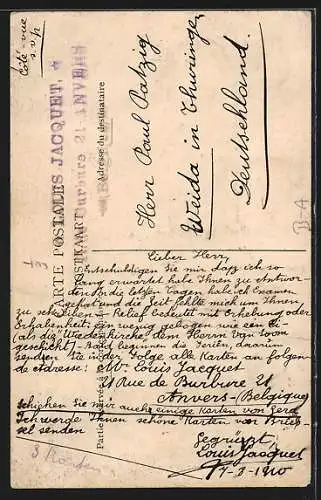 Côté-vue
s.v.p
CARTE POSTALE
POSTKAART
LOUIS JACQUET,
Rue de Burbure 21 ANVERS
Adresse du destinataire
Herr Paul Patzig
Weida in Thuringe
Deutschland.
B-A
Lieber Herr,
Entschuldigen Sie mir dasz ich so
lang erwartet habe Ihnen zu Antwor-
den. In die letzten Tagen habe ich Examen
gehabt und die Zeit fehlte mich um Ihnen
zu schreiben. Relief bedeutet mit Erhebung oder
Erhabenheit: ein wenig gebogen wie ein Ei
(als die "Wiedenkirche" dem Herrn van
geschickt). Bald beginnen die Ferien, darum
senden Sie in der Folge alle Karten an folgen-
de adresse: Mr Louis Jacquet
21 Rue de Burbure 21
Anvers-(Belgique)
Schicken Sie mir auch einige Karten von Gera
Ich werde Ihnen schöne Karten von Brüs-
sel senden
Gegrüsst,
Louis Jacquet
7-3-1910
3 Karten